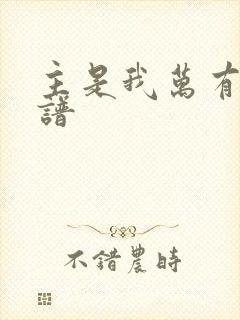 主是我萬有
譜
不錯農時